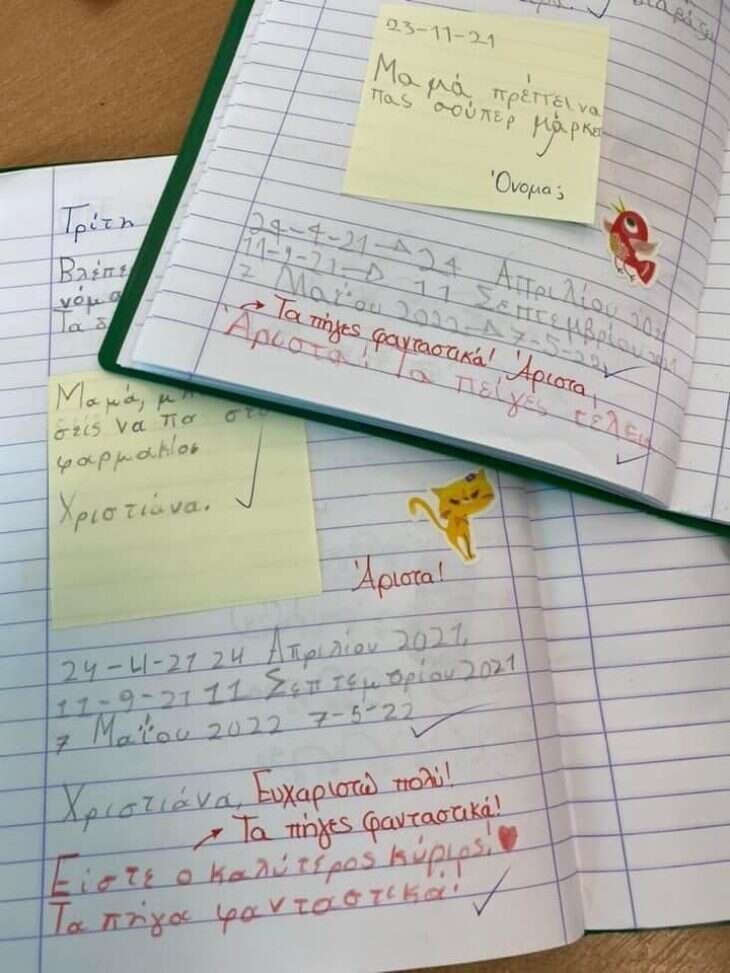 23-11-21
Μαμά πρέπει να
πας σούπερ μάρκε
Όνομα;
24-4-21 → 24 Απριλίου 2021
11-9-21 → 11 Σεπτεμβρίου 2021
7 Μαΐου 2022 → 7-5-22
→ Τα πήγες φανταστικά! Άριστα,
Άριστα! Τα πείγες τέλει
Τρίτη
Βλέπε
νόμα
Τα δ
Μαμά, μ
στις να πα στο
φαρμακίο
Χριστιάνα.
Άριστα!
24-4-21 24 Απριλίου 2021,
11-9-21 11 Σεπτεμρρίου 2021
7 Μαΐου 2022 7-5-22
Χριστιάνα, Ευχαριστώ πολύ!
→ Τα πήγες φανταστικά!
Είστε ο καλύτερος κύριος!
Τα πήγα φανταστικά!